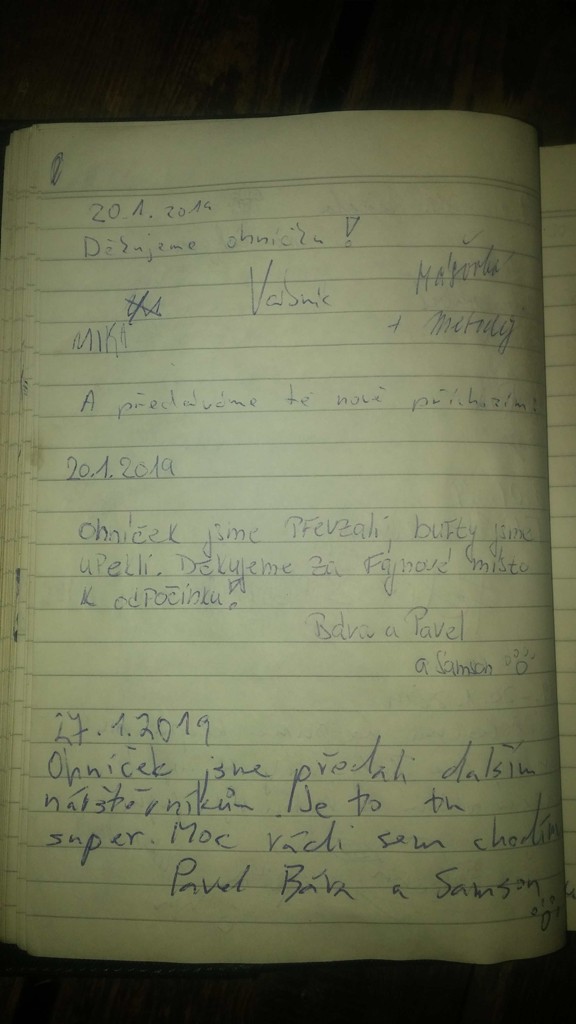 20.1.2019
Děkujeme ohníčku!
Vašík Maťovka
MIKA + Metoděj
A předáváme te nově příchozím!
20.1.2019
Ohníček jsme převzali, buřty jsme
upekli. Děkujeme za fajnové místo
k odpočinku!
Bára a Pavel
a Samson
27.1.2019
Ohníček jsme předali dalším
návštěvníkům. Je to tu
super. Moc rádi sem chodím
Pavel Bára a Samson